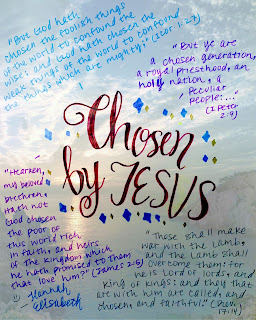 "But God hath
chosen the foolish things
of the world to confound the
wise; and God hath chosen the
weak things of the world to confound
the things which are mighty;" (1 Cor 1:27)
"But ye are
a chosen generation,
a royal priesthood, an
holy nation, a
peculiar
people:..."
(1 Peter
2:9)
Chosen
by JESUS
"Hearken,
my beloved
brethren,
Hath not
God chosen
the poor of
this world rich
in faith, and heirs
of the kingdom which
he hath promised to them
that love him?" (James 2:5)
Hannah
Elisabeth
"These shall make
war with the Lamb,
and the Lamb shall
overcome them: for
he is Lord of lords, and
king of kings: and they that
are with him are called, and
chosen, and faithful." (Rev.
17:14)